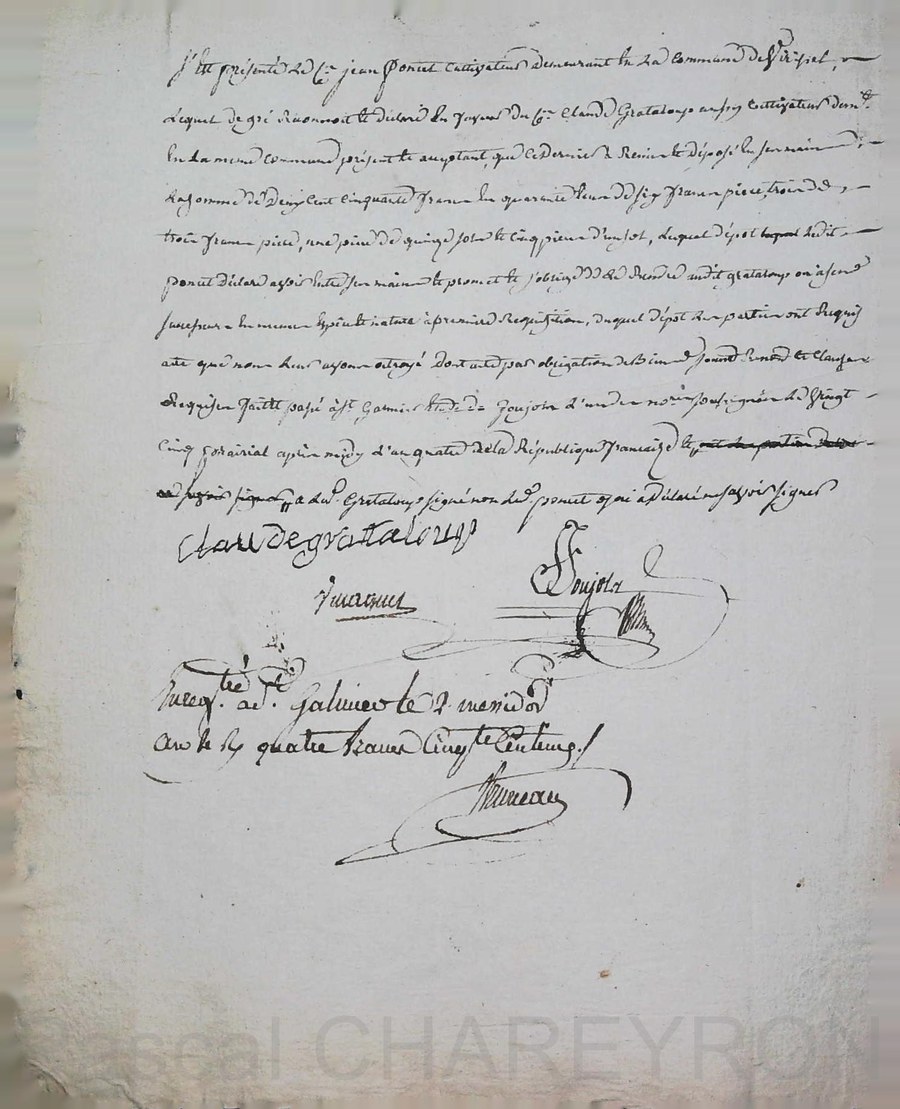 S'est présenté le Cen jean Poncet Cultivateur demeurant En La Commune de Virigniel
Lequel de gré Reconnoit et déclaré En faveur du Cen Claude Grataloup aussy Cultivateur demt
En La meme Commune présent et acceptant, que Ce dernier a Remis et déposé En ses mains
La somme de Deux Cent Cinquante francs En quarante Ecus de six francs piece, trois de
trois francs piece, une piece de quinze sols et Cinq pieces d'un sol, Lequel dépot Ledit
poncet déclare avoir Entre ses mains et promet et s'oblige de Le Rendre audit grataloup ou à ses
En memes Espèce et nature à première Requisition, duquel dépot Les parties ont Requis
acte que nous Leurs avons octroyé Dont acte par obligation de Biens Soumis Renon et Clauses
Requises fait et passé à St Galmier Etude de Joujon L'un des nores soussignés Le Vingt
Cinq prairial après midy d'an quatre de La République francaise et
a Led. Grataloup signé non Led. poncet qui a Déclaré ne savoir signer
Claude grataloup
Joujon
Enregtré a St. Galmier le 2 messidor
an 4e R quatre francs Cinqte Centimes
Bruneau
Pascal CHAREYRON